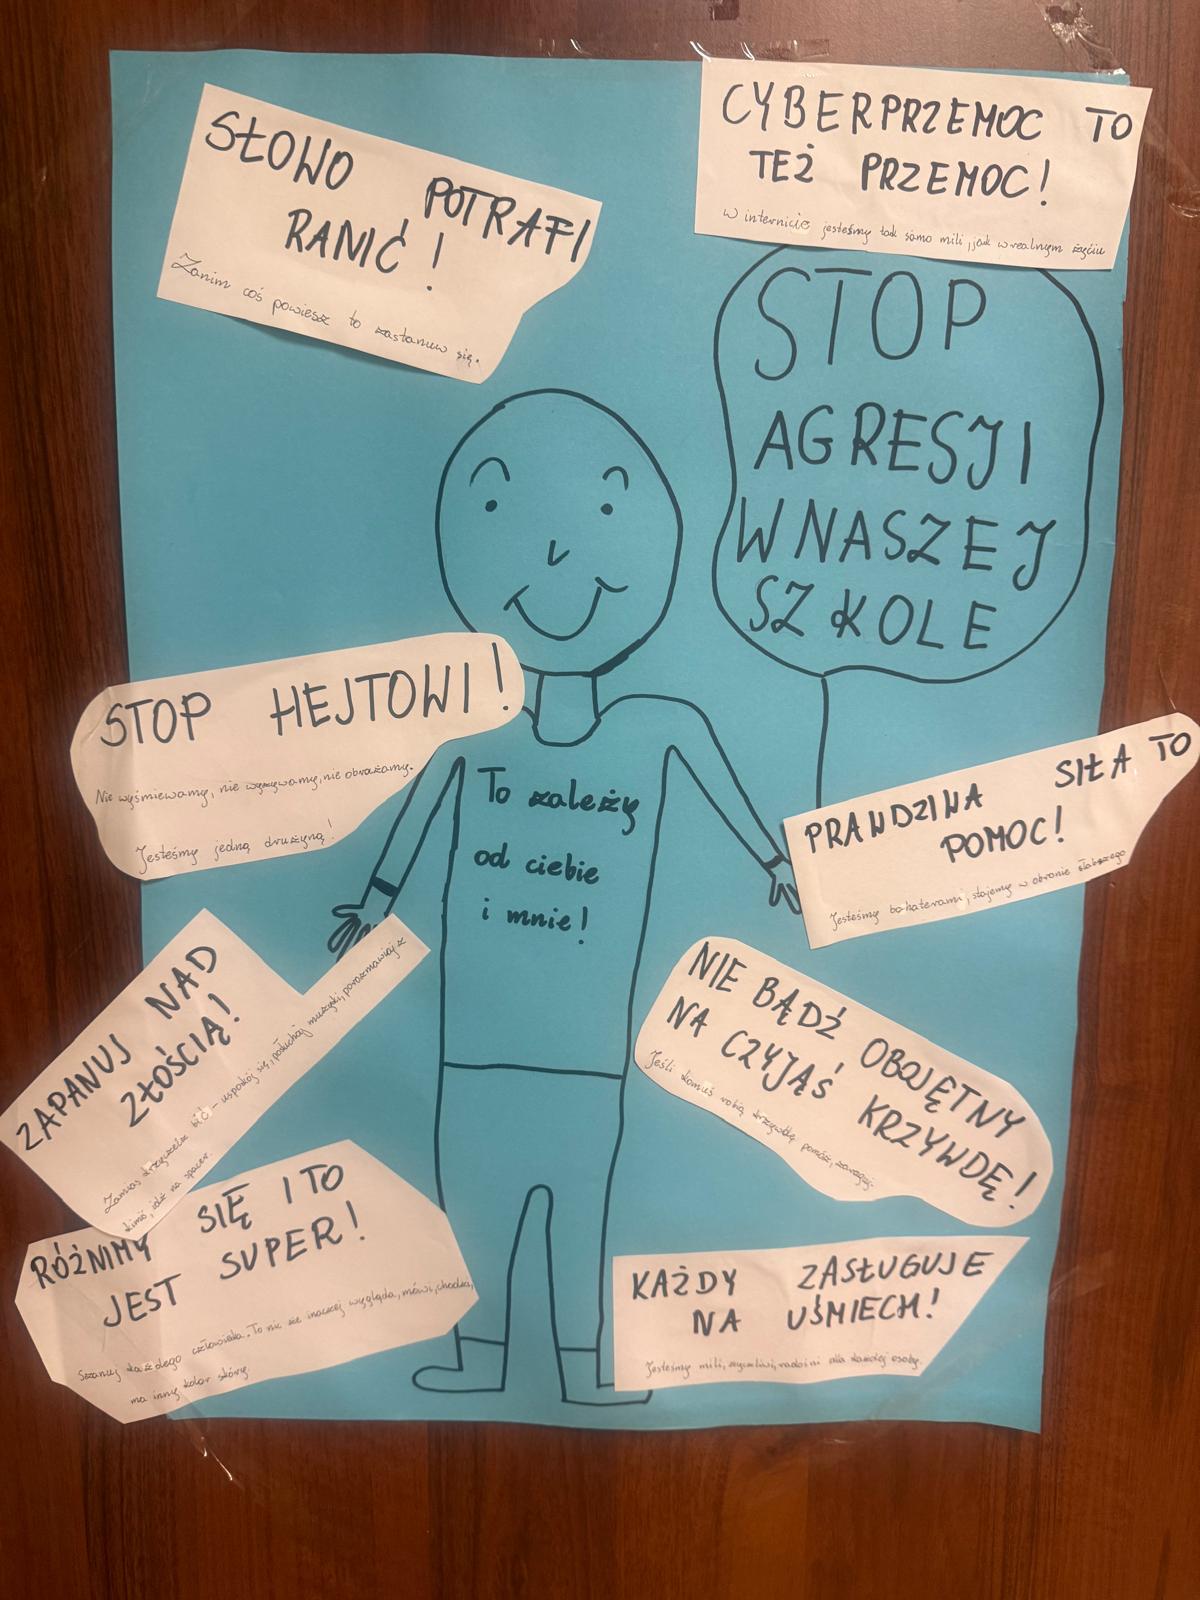 SŁOWO POTRAFI
RANIĆ!
Zanim coś powiesz to zastanuw się.
CYBERPRZEMOC TO
TEŻ PRZEMOC!
W internicie jesteśmy tak samo mili, jak w realnym życiu
STOP
AGRESJI
W NASZEJ
SZKOLE
STOP HEJTOWI!
Nie wyśmiewamy, nie wyzywamy, nie obrażamy.
Jesteśmy jedną drużyną!
To zależy
od ciebie
i mnie!
PRAWDZIWA SIŁA TO
POMOC!
Jesteśmy bohaterami, stajemy w obronie słabszego
ZAPANUJ NAD
ZŁOŚCIĄ!
Zamias krzyczeć bić - uspokój się, posłuchaj muzyki, porozmawiaj z
kimś, idź na spacer.
NIE BĄDŹ OBOJĘTNY
NA CZYJĄŚ KRZYWDĘ!
Jeśli komuś robią krzywdę, pomóż, zareaguj.
RÓŻNIMY SIĘ I TO
JEST SUPER!
Szanuj każdego człowieka. To nic że inaczej wygląda, mówi, chodzi,
ma inny kolor skóry.
KAŻDY ZASŁUGUJE
NA UŚMIECH!
Jesteśmy mili, życzliwi, radośni dla każdej osoby.